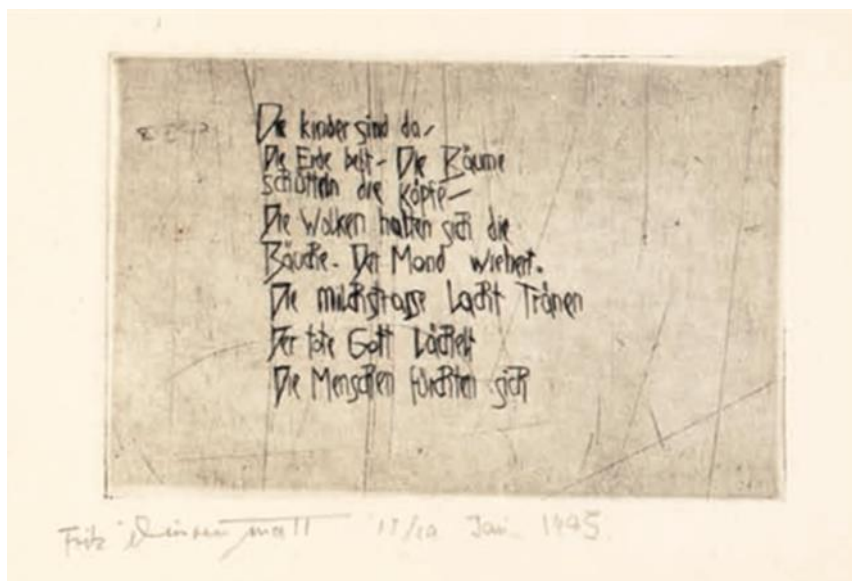 Die Kinder sind da –
Die Erde bebt – Die Bäume
schütteln die Köpfe –
Die Wolken halten sich die
Bäuche. Der Mond wiehert.
Die Milchstrasse Lacht Tränen
Der tote Gott Lächelt
Die Menschen fürchten sich
Fritz Dürrenmatt Jan. 1945